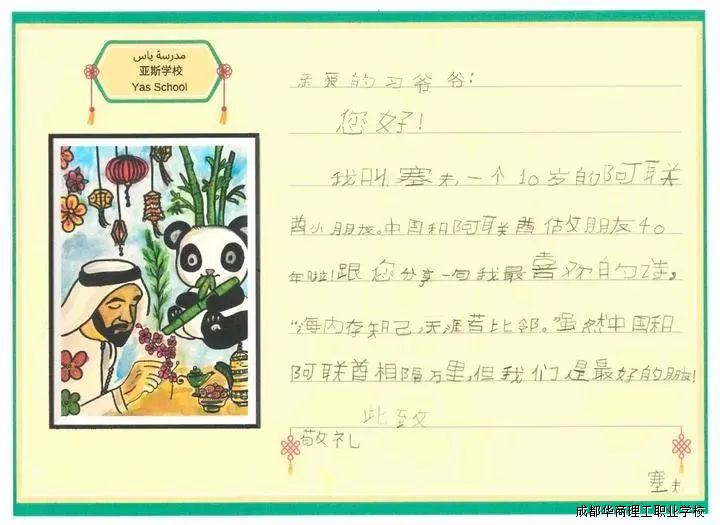 مدرسة ياس
亚斯学校
Yas School
亲爱的习爷爷：
您好！
我叫塞夫，一个10岁的阿联
酋小朋友。中国和阿联酋做朋友40
年啦！跟您分享一句我最喜欢的诗，
“海内存知己，天涯若比邻。虽然中国和
阿联酋相隔万里，但我们是最好的朋友！
此致
敬礼
塞夫
成都华商理工职业学校